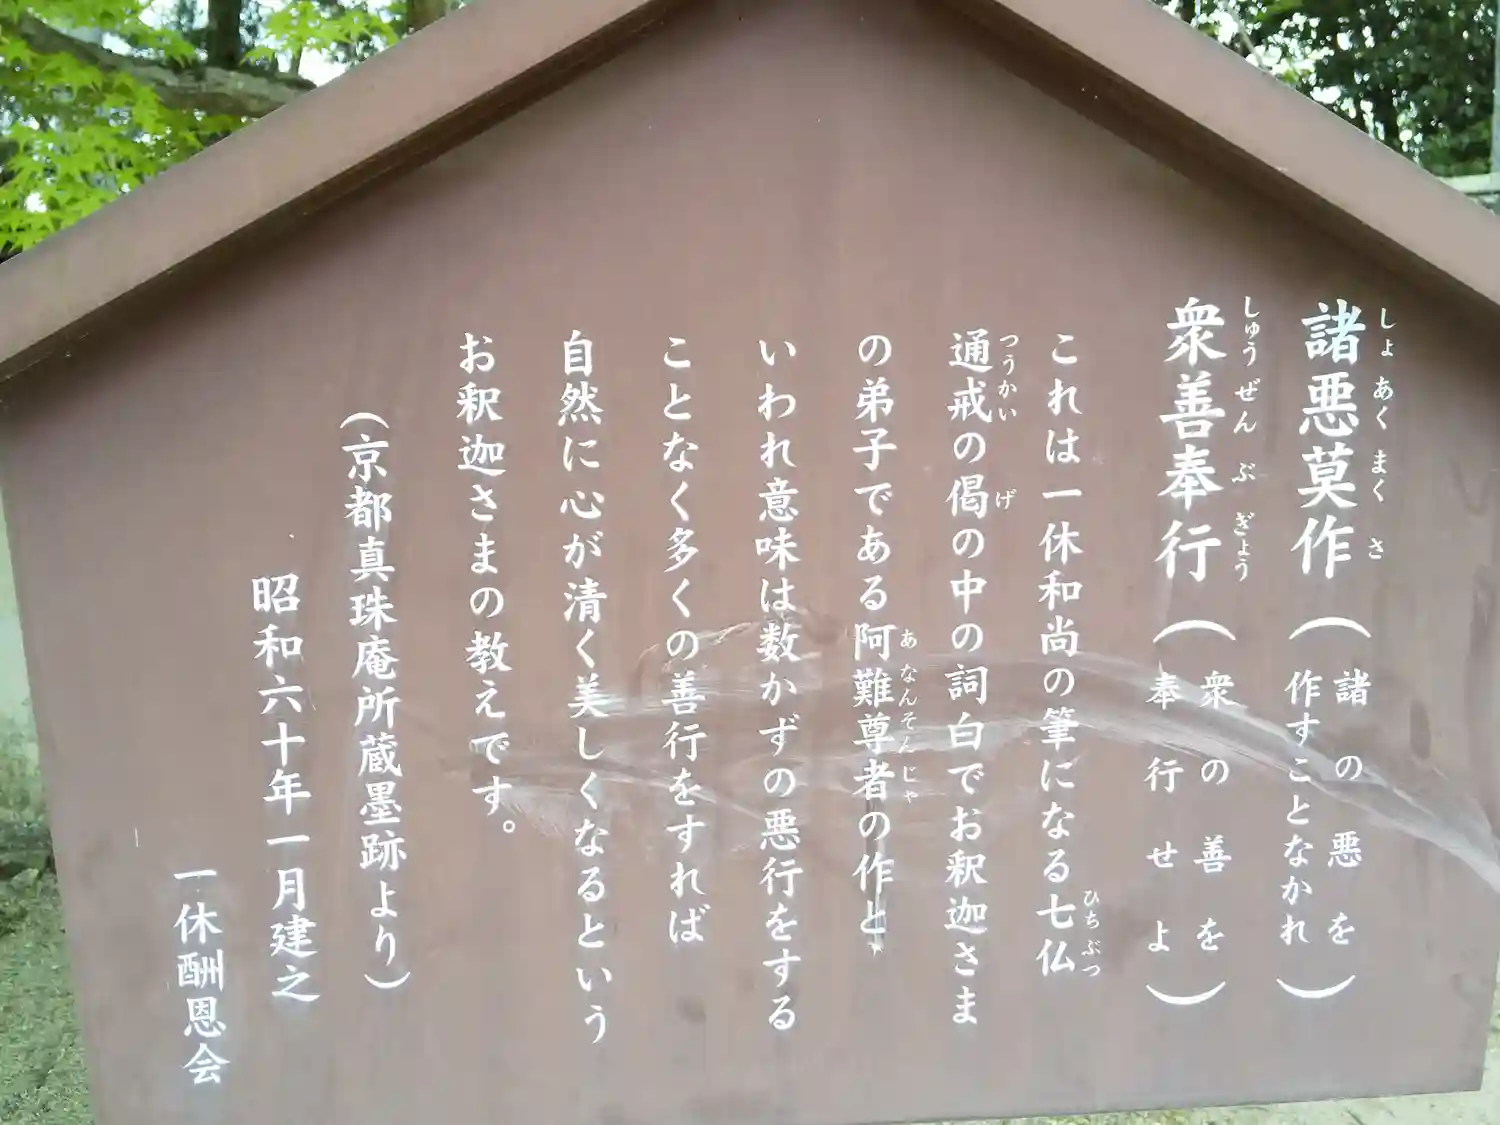 諸悪莫作（諸の悪を作すことなかれ）
しょあくまくさ
衆善奉行（衆の善を奉行せよ）
しゅうぜんぶぎょう
これは一休和尚の筆になる七仏
ひちぶつ
通戒の偈の中の詞白でお釈迦さま
つうかいげ
の弟子である阿難尊者の作と
あなんそんじゃ
いわれ意味は数かずの悪行をする
ことなく多くの善行をすれば
自然に心が清く美しくなるという
お釈迦さまの教えです。
（京都真珠庵所蔵墨跡より）
昭和六十年一月建之
一休酬恩会